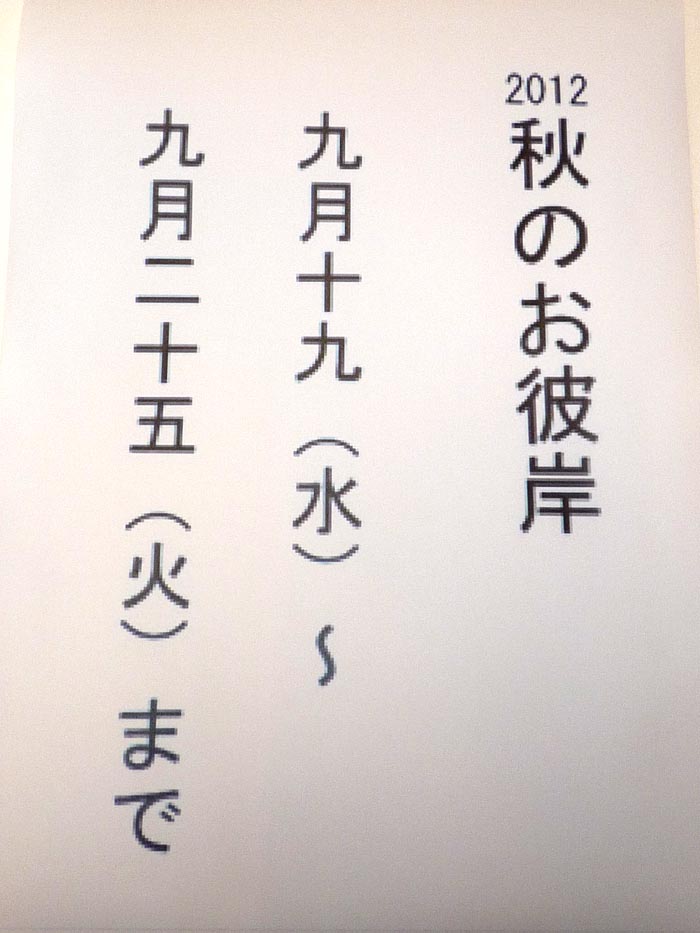 2012
秋のお彼岸
九月十九（水）～
九月二十五（火）まで